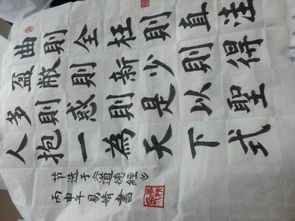 曲則全枉則直注
盈敝則新少則得
多則惑則是以聖
人抱一為天下式
节选于《道德經》
丙申年易崎書